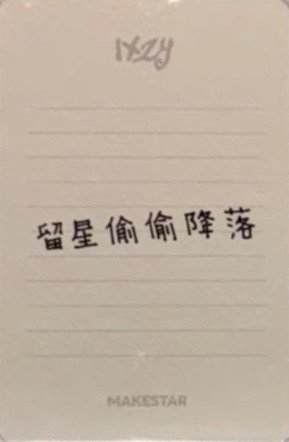 ITZY
留星偷偷降落
MAKESTAR